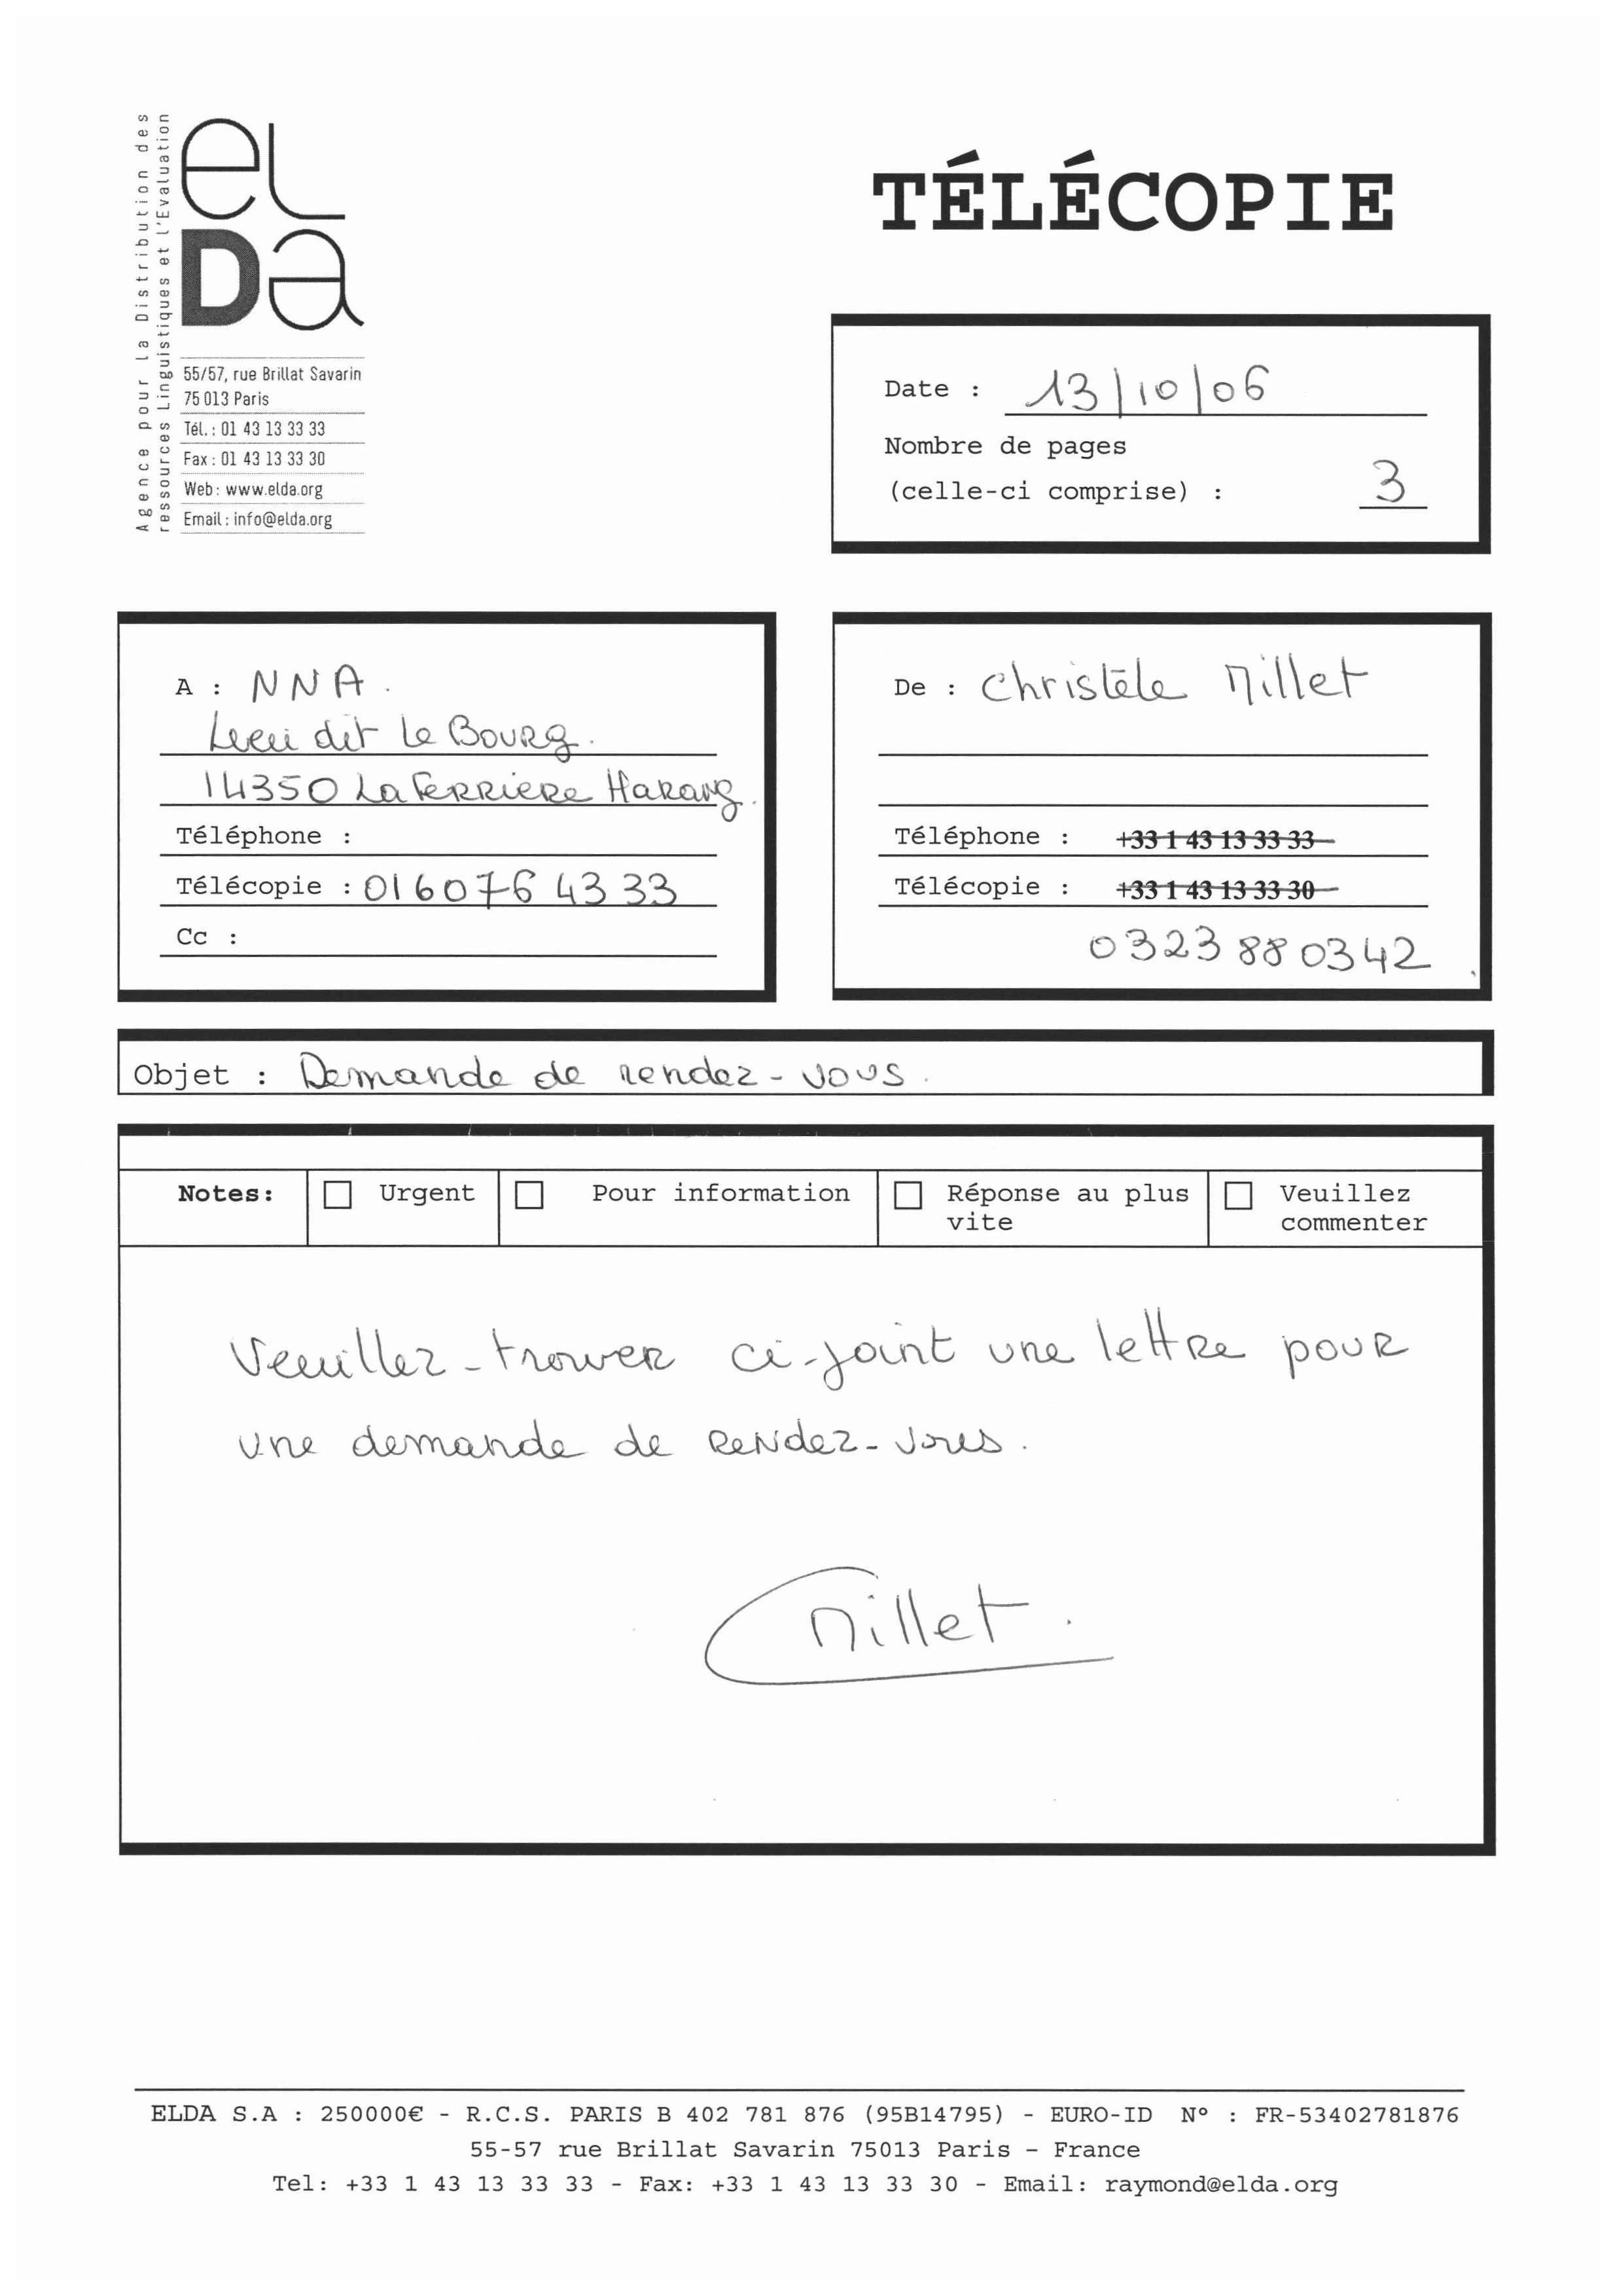 Agence pour la Distribution des
ressources Linguistiques et l'Evaluation
eL
Da
55/57, rue Brillat Savarin
75 013 Paris
Tél. : 01 43 13 33 33
Fax : 01 43 13 33 30
Web : www.elda.org
Email : info@elda.org
TÉLÉCOPIE
Date : 13/10/06
Nombre de pages
(celle-ci comprise) : 3
A : NNA.
Lieu dit Le Bourg.
14350 La Ferriere Harang.
Téléphone :
Télécopie : 0160764333
Cc :
De : Christèle Millet
Téléphone : +33 1 43 13 33 33
Télécopie : +33 1 43 13 33 30
0323880342.
Objet : Demande de rendez-vous.
Notes: Urgent Pour information Réponse au plus vite Veuillez commenter
Veuillez-trouver ci-joint une lettre pour
une demande de rendez-vous.
Millet.
ELDA S.A : 250000€ - R.C.S. PARIS B 402 781 876 (95B14795) - EURO-ID N° : FR-53402781876
55-57 rue Brillat Savarin 75013 Paris – France
Tel: +33 1 43 13 33 33 - Fax: +33 1 43 13 33 30 - Email: raymond@elda.org